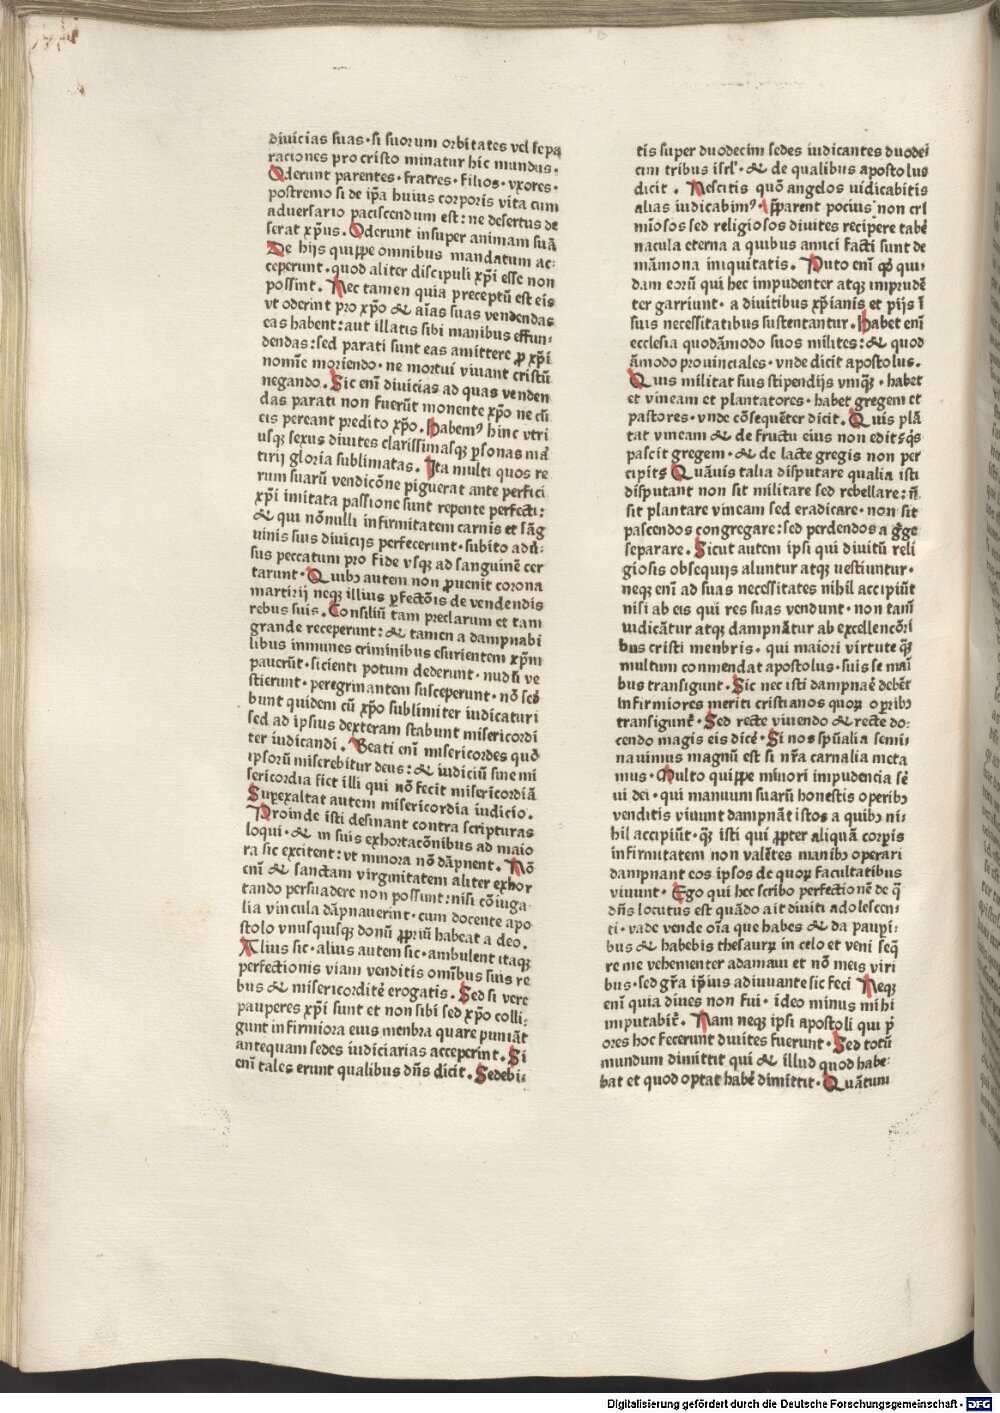 diuicias suas · si suorum orbitates vel sepa
raciones pro cristo minatur hic mundus ·
Oderunt parentes · fratres · filios · vxores ·
postremo si de ip̄a huius corporis vita cum
aduersario paciscendum est : ne desertus de
serat xp̄us . Oderunt insuper animam suā
De hijs quippe omnibus mandatum ac-
ceperunt · quod aliter discipuli xp̄i esse non
possint . Nec tamen quia preceptū est eis
vt oderint pro xp̄o & aīas suas vendendas
eas habent : aut illatis sibi manibus effun-
dendas : sed parati sunt eas amittere ꝓ xp̄i
nomīe moriendo · ne mortui viuant cristū
negando . Sic enī diuicias ad quas venden
das parati non fuerūt monente xp̄o ne cū
eis pereant predito xp̄o . Habemꝰ hinc vtri
usqꝫ sexus diuites clarissimasqꝫ ꝑsonas mar
tirij gloria sublimatas . Ita multi quos re
rum suarū vendicōne piguerat ante perfici
xp̄i imitata passione sunt repente perfecti :
& qui nōnulli infirmitatem carnis et sāg
uinis suis diuicijs perfecerunt · subito adu-
sus peccatum pro fide vsqꝫ ad sanguinē cer
tarunt · Quibꝫ autem non ꝓuenit corona
martirij neqꝫ illius ꝑfectōis de vendendis
rebus suis . Consiliū tam preclarum et tam
grande receperunt : & tamen a dampnabi
libus immunes criminibus esurientem xp̄m
pauerūt · sicienti potum dederunt · nudū ve
stierunt · peregrinantem susceperunt · nō sed
bunt quidem cū xp̄o sublimiter iudicaturi
sed ad ipsius dexteram stabunt misericordi
ter iudicandi . Beati enī misericordes quō
ipsorū miserebitur deus : & iudiciū sine mi
sericordia fiet illi qui nō fecit misericordiā
Suꝑexaltat autem misericordia iudicio .
Proinde isti desinant contra scripturas
loqui · & in suis exhortacōnibus ad maio
ra sic excitent : vt minora nō dāpnent . Nō
enī & sanctam virginitatem aliter exhor
tando persuadere non possunt : nisi cōiuga
lia vincula dāpnauerint · cum docente apo
stolo vnusquisqꝫ donū ꝓpriū habeat a deo .
Alius sic · alius autem sic · ambulent itaqꝫ
perfectionis viam venditis omībus suis re
bus & misericorditē erogatis . Sed si vere
pauperes xp̄i sunt et non sibi sed xp̄o colli-
gunt infirmiora eius menbra quare puniāt
antequam sedes iudiciarias acceperint . Si
enī tales erunt qualibus dn̄s dicit . Sedebi-
tis super duodecim sedes iudicantes duodeī
cim tribus isrl' · & de qualibus apostolus
dicit . Nescitis quō angelos iudicabitis
alias iudicabimꝰ · Pparent pocius non cri
miosos sed religiosos diuites recipere tabē
nacula eterna a quibus amici facti sunt de
māmona iniquitatis . Puto enī qꝫ qui-
dam eorū qui hec impudenter atqꝫ imprudē
ter garriunt · a diuitibus xp̄ianis et pijs ī
suis necessitatibus sustentantur . Habet enī
ecclesia quodāmodo suos milites : & quod
āmodo prouinciales · vnde dicit apostolus .
Quis militat suis stipendijs vmqꝫ · habet
et vineam et plantatores · habet gregem et
pastores · vnde cōsequēter dicit . Quis plā
tat vineam & de fructu eius non edit · q̄s
pascit gregem · & de lacte gregis non per
cipits Quāuis talia disputare qualia isti
disputant non sit militare sed rebellare : n̄
sit plantare vineam sed eradicare · non sit
pascendos congregare : sed perdendos a gg̱e
separare . Sicut autem ipsi qui diuitū reli
giosis obsequijs aluntur atqꝫ uestiuntur ·
neqꝫ enī ad suas necessitates nihil accipiūt
nisi ab eis qui res suas vendunt · non tamī
iudicātur atqꝫ dampnātur ab excellencōri
bus cristi menbris · qui maiori virtute qꝫ
multum conmendat apostolus · suis se maī
bus transigunt . Sic nec isti dampnaē debēt
infirmiores meriti cristianos quoꝝ oꝑibꝫ
transigunt . Sed recte viuendo & recte do-
cendo magis eis dicē · Si nos spūalia semi-
nauimus magnū est si nr̄a carnalia meta
mus · Multo quippe minori impudencia sē
ui dei · qui manuum suarū honestis operibꝫ
venditis viuunt dampnāt istos a quibꝫ ni-
hil accipiūt · qꝫ isti qui ꝓpter aliquā corꝑis
infirmitatem non valētes manibꝫ operari
dampnant eos ipsos de quoꝝ facultatibus
viuunt · Ego qui hec scribo perfectionē de q̄
dn̄s locutus est quādo ait diuiti adolescen-
ti · vade vende oīa que habes & da pauꝑi-
bus & habebis thesaurꝝ in celo et veni seq̄
re me vehementer adamaui et nō meis viri
bus · sed gr̄a ip̄ius adiuuante sic feci Neqꝫ
enī quia diues non fui · ideo minus mihi
imputabit̄ . Nam neqꝫ ipsi apostoli qui p̄
ores hoc fecerunt diuites fuerunt · Sed totū
mundum dimittit qui & illud quod habe-
bat et quod optat habē dimittit · Quātum
Digitalisierung gefördert durch die Deutsche Forschungsgemeinschaft - DFG